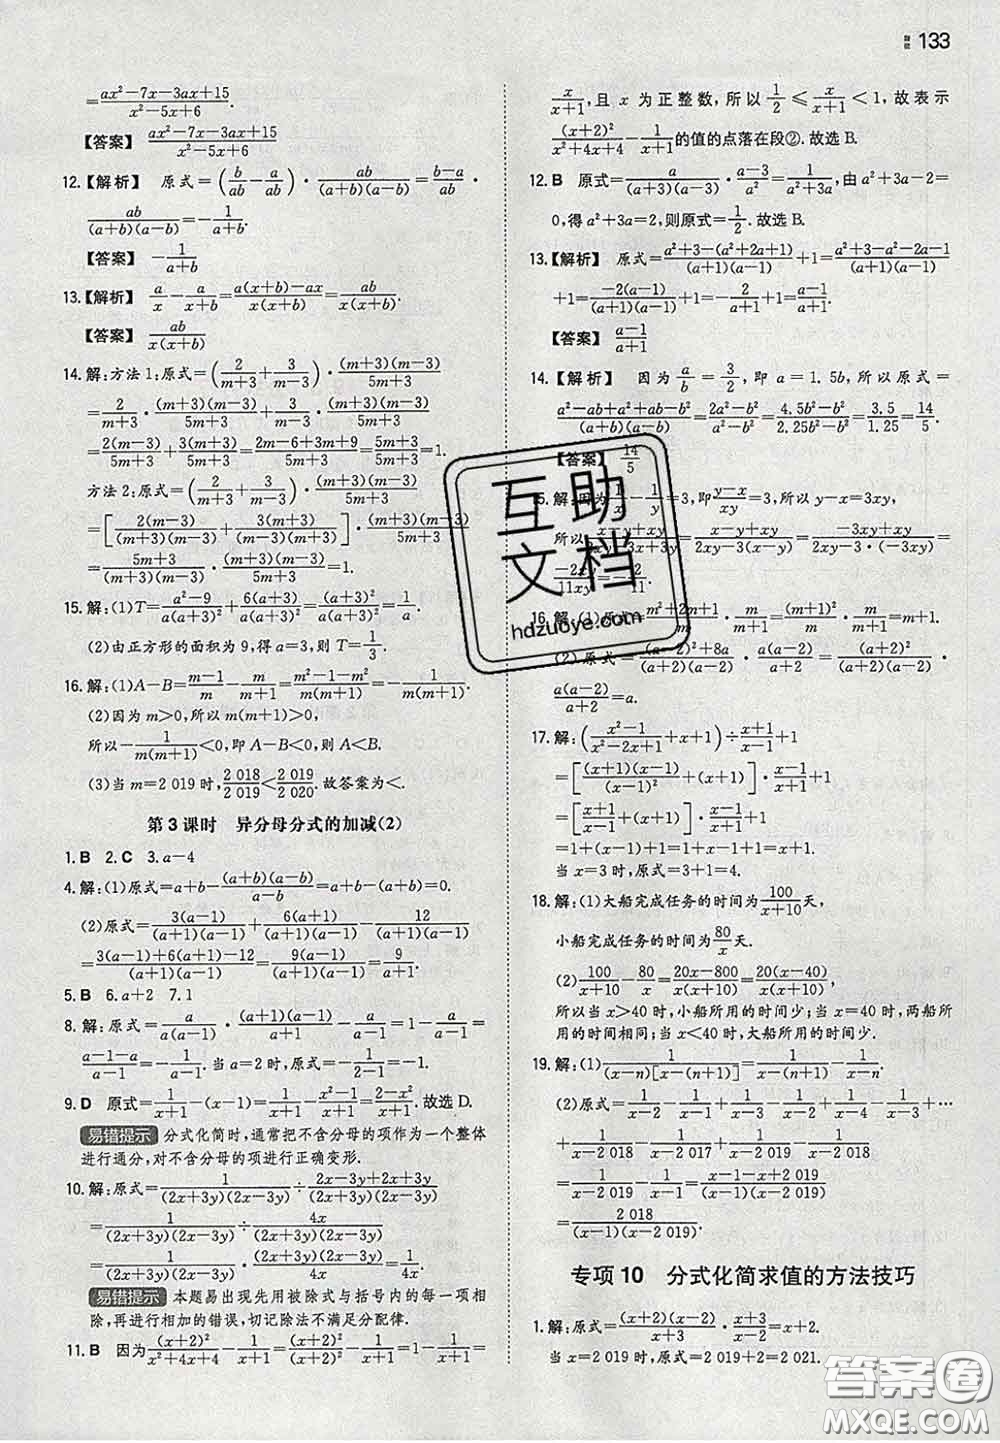 133
=\frac{ax²-7x-3ax+15}{x²-5x+6}.
【答案】 \frac{ax²-7x-3ax+15}{x²-5x+6}
12.【解析】 原式=(\frac{b}{ab}-\frac{a}{ab})·\frac{ab}{(a+b)(a-b)}=\frac{b-a}{ab}·
\frac{ab}{(a+b)(a-b)}=-\frac{1}{a+b}.
【答案】 -\frac{1}{a+b}
13.【解析】 \frac{a}{x}-\frac{a}{x+b}=\frac{a(x+b)-ax}{x(x+b)}=\frac{ab}{x(x+b)}.
【答案】 \frac{ab}{x(x+b)}
14.解:方法1:原式=(\frac{2}{m+3}+\frac{3}{m-3})·\frac{(m+3)(m-3)}{5m+3}
=\frac{2}{m+3}·\frac{(m+3)(m-3)}{5m+3}+\frac{3}{m-3}·\frac{(m+3)(m-3)}{5m+3}
=\frac{2(m-3)}{5m+3}+\frac{3(m+3)}{5m+3}=\frac{2m-6+3m+9}{5m+3}=\frac{5m+3}{5m+3}=1.
方法2:原式=(\frac{2}{m+3}+\frac{3}{m-3})·\frac{(m+3)(m-3)}{5m+3}
=[\frac{2(m-3)}{(m+3)(m-3)}+\frac{3(m+3)}{(m+3)(m-3)}]·\frac{(m+3)(m-3)}{5m+3}
=\frac{5m+3}{(m+3)(m-3)}·\frac{(m+3)(m-3)}{5m+3}=1.
15.解:(1)T=\frac{a²-9}{a(a+3)²}+\frac{6(a+3)}{a(a+3)²}=\frac{(a+3)²}{a(a+3)²}=\frac{1}{a}.
(2)由正方形的面积为9,得a=3,所以T=\frac{1}{3}.
16.解:(1)A-B=\frac{m-1}{m}-\frac{m}{m+1}=\frac{m²-1-m²}{m(m+1)}=-\frac{1}{m(m+1)}.
(2)因为m>0,所以m(m+1)>0,
所以-\frac{1}{m(m+1)}<0,即A-B<0,所以A<B.
(3)当m=2 019时,\frac{2 018}{2 019}<\frac{2 019}{2 020}.故答案为<.
第3课时 异分母分式的加减(2)
1.B 2.C 3.a-4
4.解:(1)原式=a+b-\frac{(a+b)(a-b)}{a-b}=a+b-(a+b)=0.
(2)原式=\frac{3(a-1)}{(a+1)(a-1)}+\frac{6(a+1)}{(a+1)(a-1)}-\frac{12}{(a+1)(a-1)}
=\frac{3(a-1)+6(a+1)-12}{(a+1)(a-1)}=\frac{9(a-1)}{(a+1)(a-1)}=\frac{9}{a+1}.
5.B 6.a+2 7.1
8.解:原式=\frac{a}{a(a-1)}·\frac{(a+1)(a-1)}{a+1}-\frac{1}{a-1}=1-\frac{1}{a-1}=
\frac{a-1-a}{a-1}=-\frac{1}{a-1}.当a=2时,原式=-1.
9.D 原式=\frac{1}{x+1}-(x-1)=\frac{1}{x+1}-\frac{x²-1}{x+1}=\frac{2-x²}{x+1}.故选D.
易错提示 分式化简时,通常把不含分母的项作为一个整体
进行通分,对不含分母的项进行正确变形.
10.解:原式=\frac{1}{(2x+3y)(2x-3y)}÷\frac{2x-3y+2x+3y}{(2x+3y)(2x-3y)}
=\frac{1}{(2x+3y)(2x-3y)}÷\frac{4x}{(2x+3y)(2x-3y)}
=\frac{1}{(2x+3y)(2x-3y)}·\frac{(2x+3y)(2x-3y)}{4x}=\frac{1}{4x}.
易错提示 本题易出现先用被除式与括号内的每一项相
除,再进行相加的错误,切记除法不满足分配律.
11.B 因为\frac{(x+2)²}{x²+4x+4}-\frac{1}{x+1}=\frac{(x+2)²}{(x+2)²}-\frac{1}{x+1}=1-\frac{1}{x+1}=
\frac{x}{x+1},且x为正整数,所以\frac{1}{2}≤\frac{x}{x+1}<1,故表示
\frac{(x+2)²}{x²+4x+4}-\frac{1}{x+1}的值的点落在段②.故选B.
12.B 原式=\frac{a}{(a+3)(a-3)}·\frac{a-3}{a²}=\frac{1}{a²+3a},由a²+3a-2=
0,得a²+3a=2,则原式=\frac{1}{2}.故选B.
13.【解析】 原式=\frac{a²+3-(a²+2a+1)}{(a+1)(a-1)}+1=\frac{a²+3-a²-2a-1}{(a+1)(a-1)}
+1=\frac{-2(a-1)}{(a+1)(a-1)}+1=-\frac{2}{a+1}+1=\frac{a-1}{a+1}.
【答案】 \frac{a-1}{a+1}
14.【解析】 因为\frac{a}{b}=\frac{3}{2},即a=1.5b,所以原式=
\frac{a²-ab+a²+ab-b²}{(a+b)(a-b)}=\frac{2a²-b²}{a²-b²}=\frac{4.5b²-b²}{2.25b²-b²}=\frac{3.5}{1.25}=\frac{14}{5}.
【答案】 \frac{14}{5}
15.解:因为\frac{1}{x}-\frac{1}{y}=3,即\frac{y-x}{xy}=3,所以y-x=3xy,
所以\frac{x-y+xy}{2xy-3x+3y}=\frac{x-y+xy}{2xy-3(x-y)}=\frac{-3xy+xy}{2xy-3·(-3xy)}=
\frac{-2xy}{11xy}=-\frac{2}{11}.
16.解:(1)原式=\frac{m²+2m+1}{m}·
(2)原式=\frac{(a-2)²+8a}{(a+2)(a-2)}·\frac{a(a-2)}{a+2}=\frac{(a+2)²}{(a+2)(a-2)}·
\frac{a(a-2)}{a+2}=a.
17.解:(\frac{x²-1}{x²-2x+1}+x+1)÷\frac{x+1}{x-1}+1
=[\frac{(x+1)(x-1)}{(x-1)²}+(x+1)]·\frac{x-1}{x+1}+1
=\frac{x+1}{x-1}·\frac{x-1}{x+1}+(x+1)·\frac{x-1}{x+1}+1
=1+(x-1)+1=1+x-1+1=x+1.
当x=3时,原式=3+1=4.
18.解:(1)大船完成任务的时间为\frac{100}{x+10}天,
小船完成任务的时间为\frac{80}{x}天.
(2)\frac{100}{x+10}-\frac{80}{x}=\frac{20x-800}{x(x+10)}=\frac{20(x-40)}{x(x+10)},
所以当x>40时,小船所用的时间少;当x=40时,两船所
用的时间相同;当x<40时,大船所用的时间少.
19.解:(1)\frac{1}{(x-n)[x-(n+1)]}=\frac{1}{x-(n+1)}-\frac{1}{x-n}.
(2)原式=\frac{1}{x-2}-\frac{1}{x-1}+\frac{1}{x-3}-\frac{1}{x-2}+\frac{1}{x-4}-\frac{1}{x-3}+…
+\frac{1}{x-2 018}-\frac{1}{x-2 017}+\frac{1}{x-2 019}-\frac{1}{x-2 018}
=\frac{1}{x-2 019}-\frac{1}{x-1}=\frac{x-1-x+2 019}{(x-1)(x-2 019)}=
\frac{2 018}{(x-1)(x-2 019)}.
专项10 分式化简求值的方法技巧
1.解:原式=\frac{(x+2)(x-2)}{x+3}·\frac{x+3}{x-2}=x+2.
当x=2 019时,原式=2 019+2=2 021.
互助
文档
hdzuoye.com
答案圈
MXQE.COM